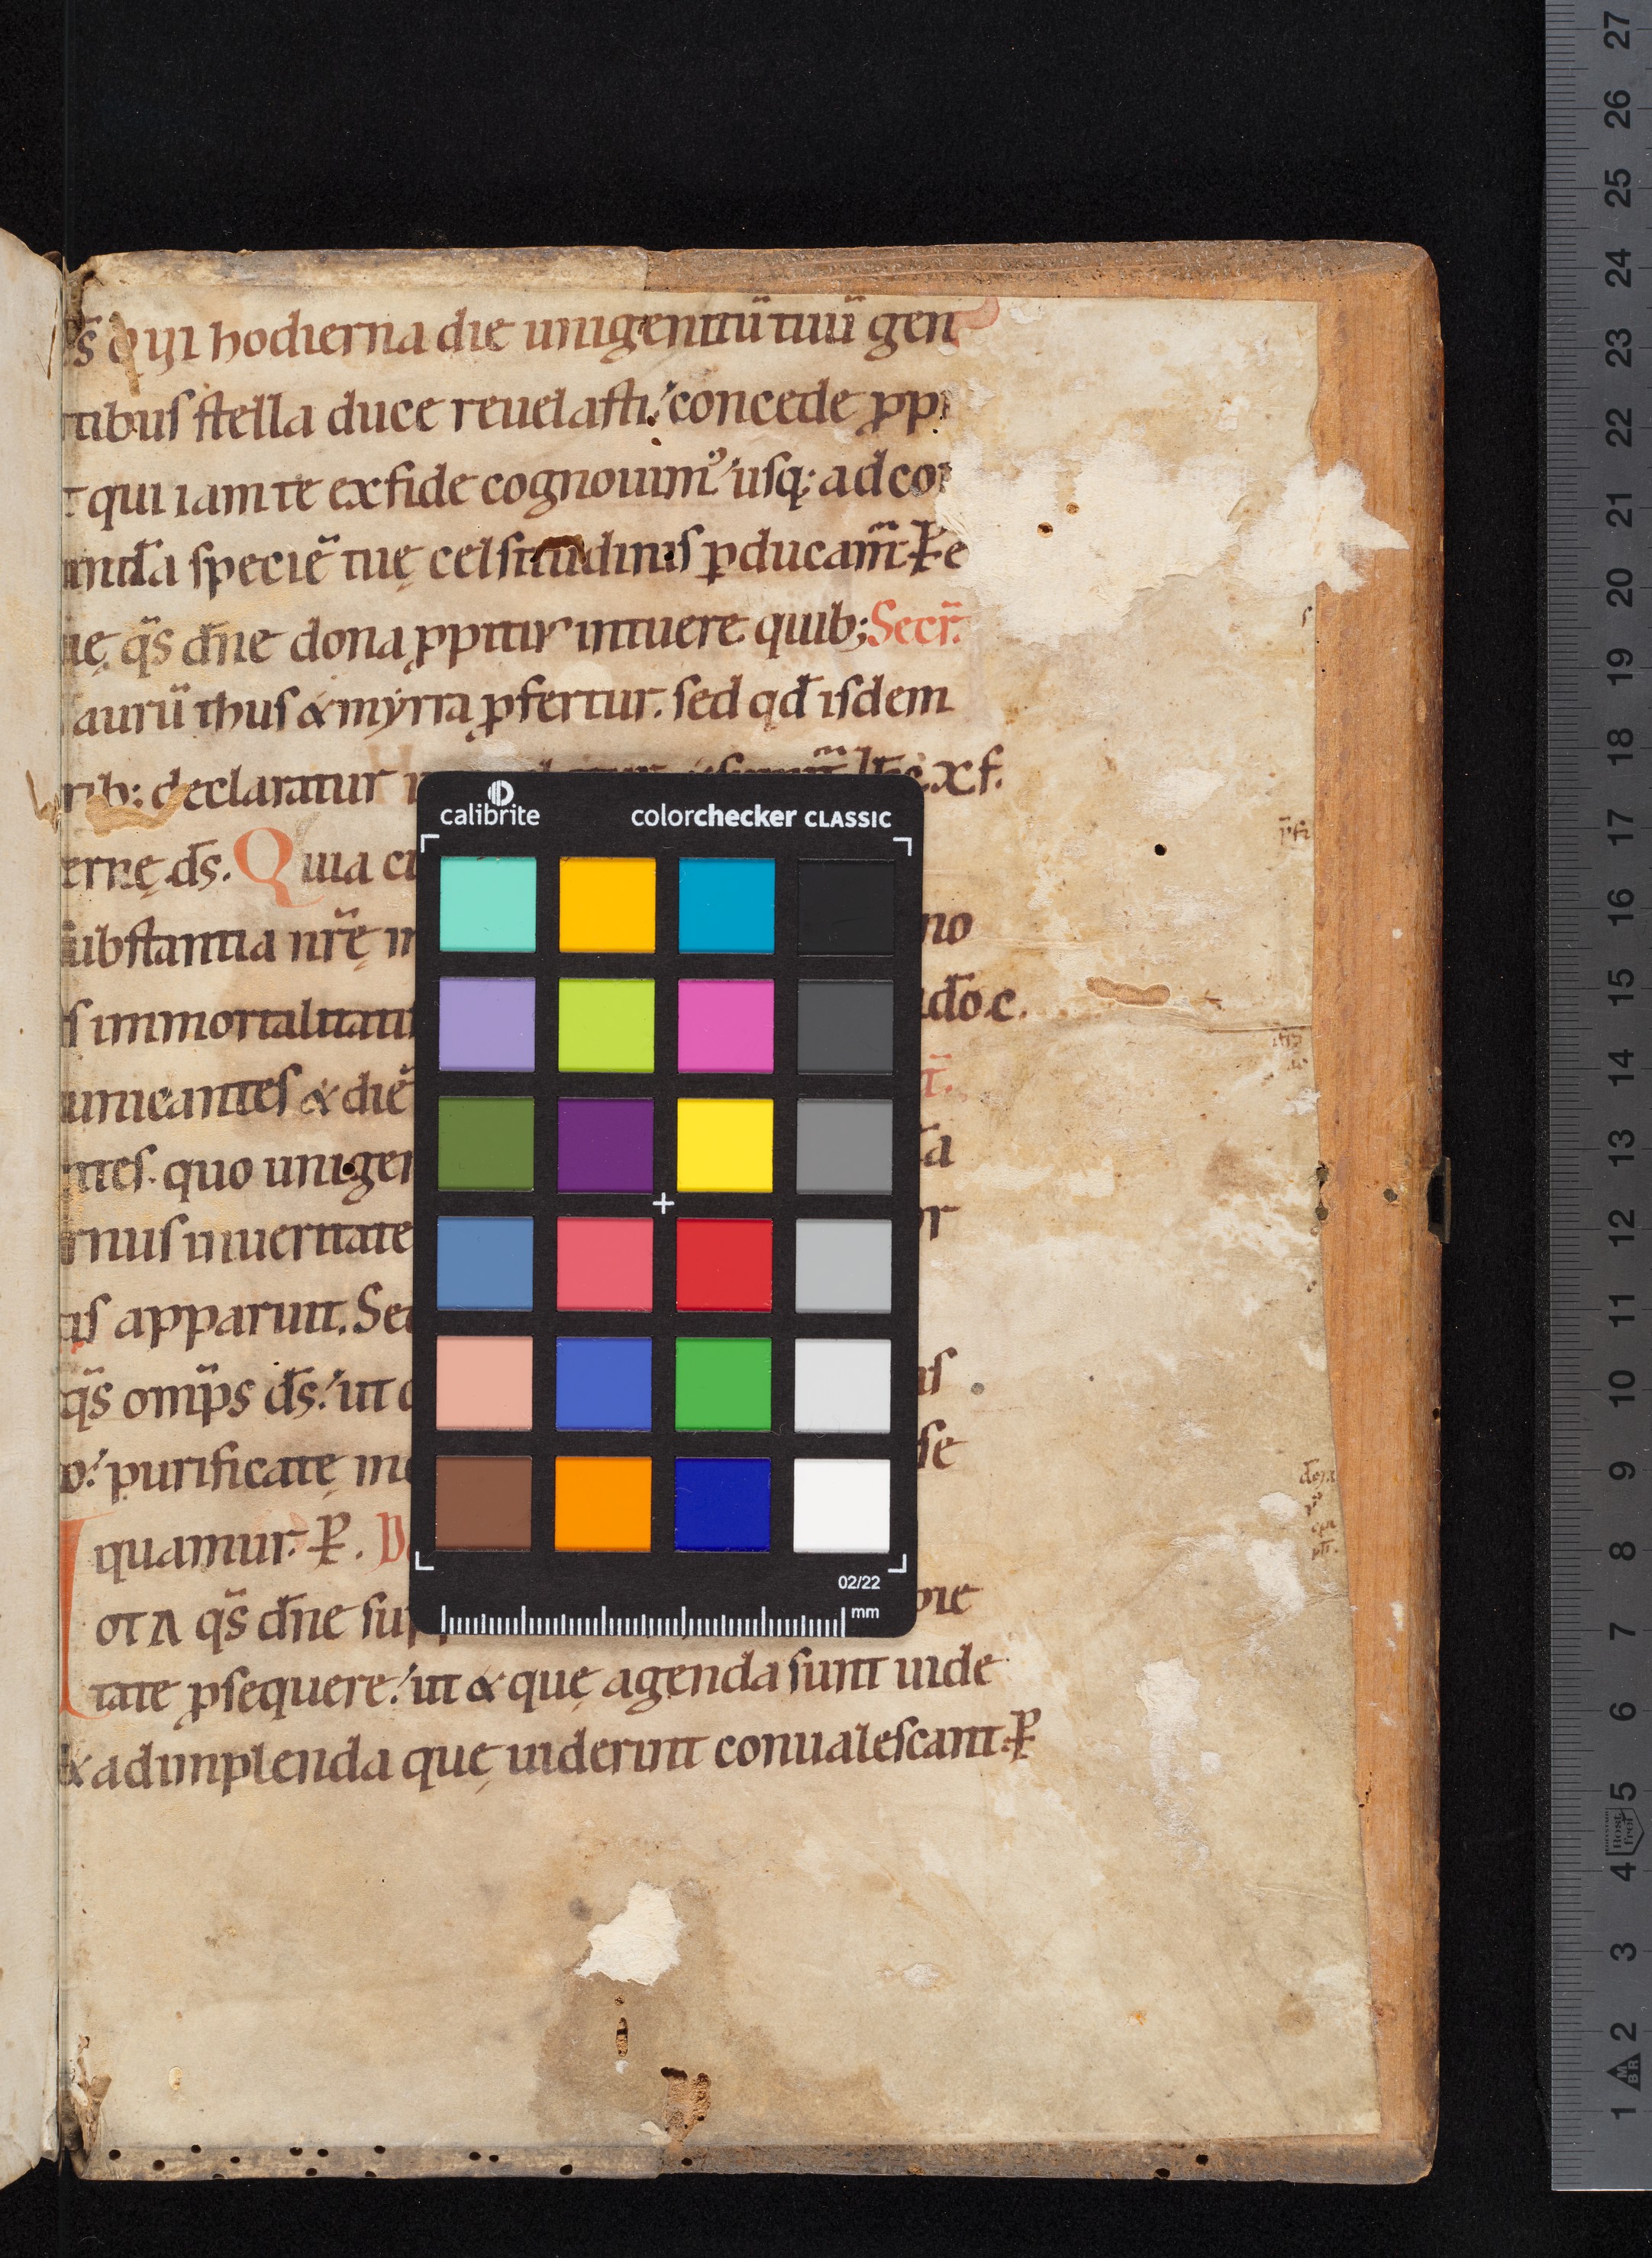 s̄ qui hodierna die unigenitū tuū gen
tibus stella duce reuelasti. concede ꝓp
t qui iam te ex fide cognouimꝰ usq; ad co
nda speciē tuę celsitudinis ꝑducam̄ P̵ e
ię. qs̄ dn̄e dona ꝓpitiꝰ intuere. quib; Secr̄.
aurū thus & myrra ꝓfertur. sed qđ isdem
rib; declaratur xp̄c. x f.
ernę. ds̄. Quia cū
ubstantia nr̄ę in no
s immortalitatis ado. c.
unicantes & diē t̄.
ntes. quo unigen ta
rnus in ueritate or
is apparuit. Sed
qs̄ omp̄s ds̄. ut is
o. purificatę me se
quamur. P̵. D
ota qs̄ dn̄e sup pie
tate ꝓsequere. ut & quę agenda sunt uide
& ad implenda quę uiderint conualescant. P̵
calibrite
colorchecker CLASSIC
02/22
mm
27
26
25
24
23
22
21
20
19
18
17
16
15
14
13
12
11
10
9
8
7
6
5
4
3
2
1